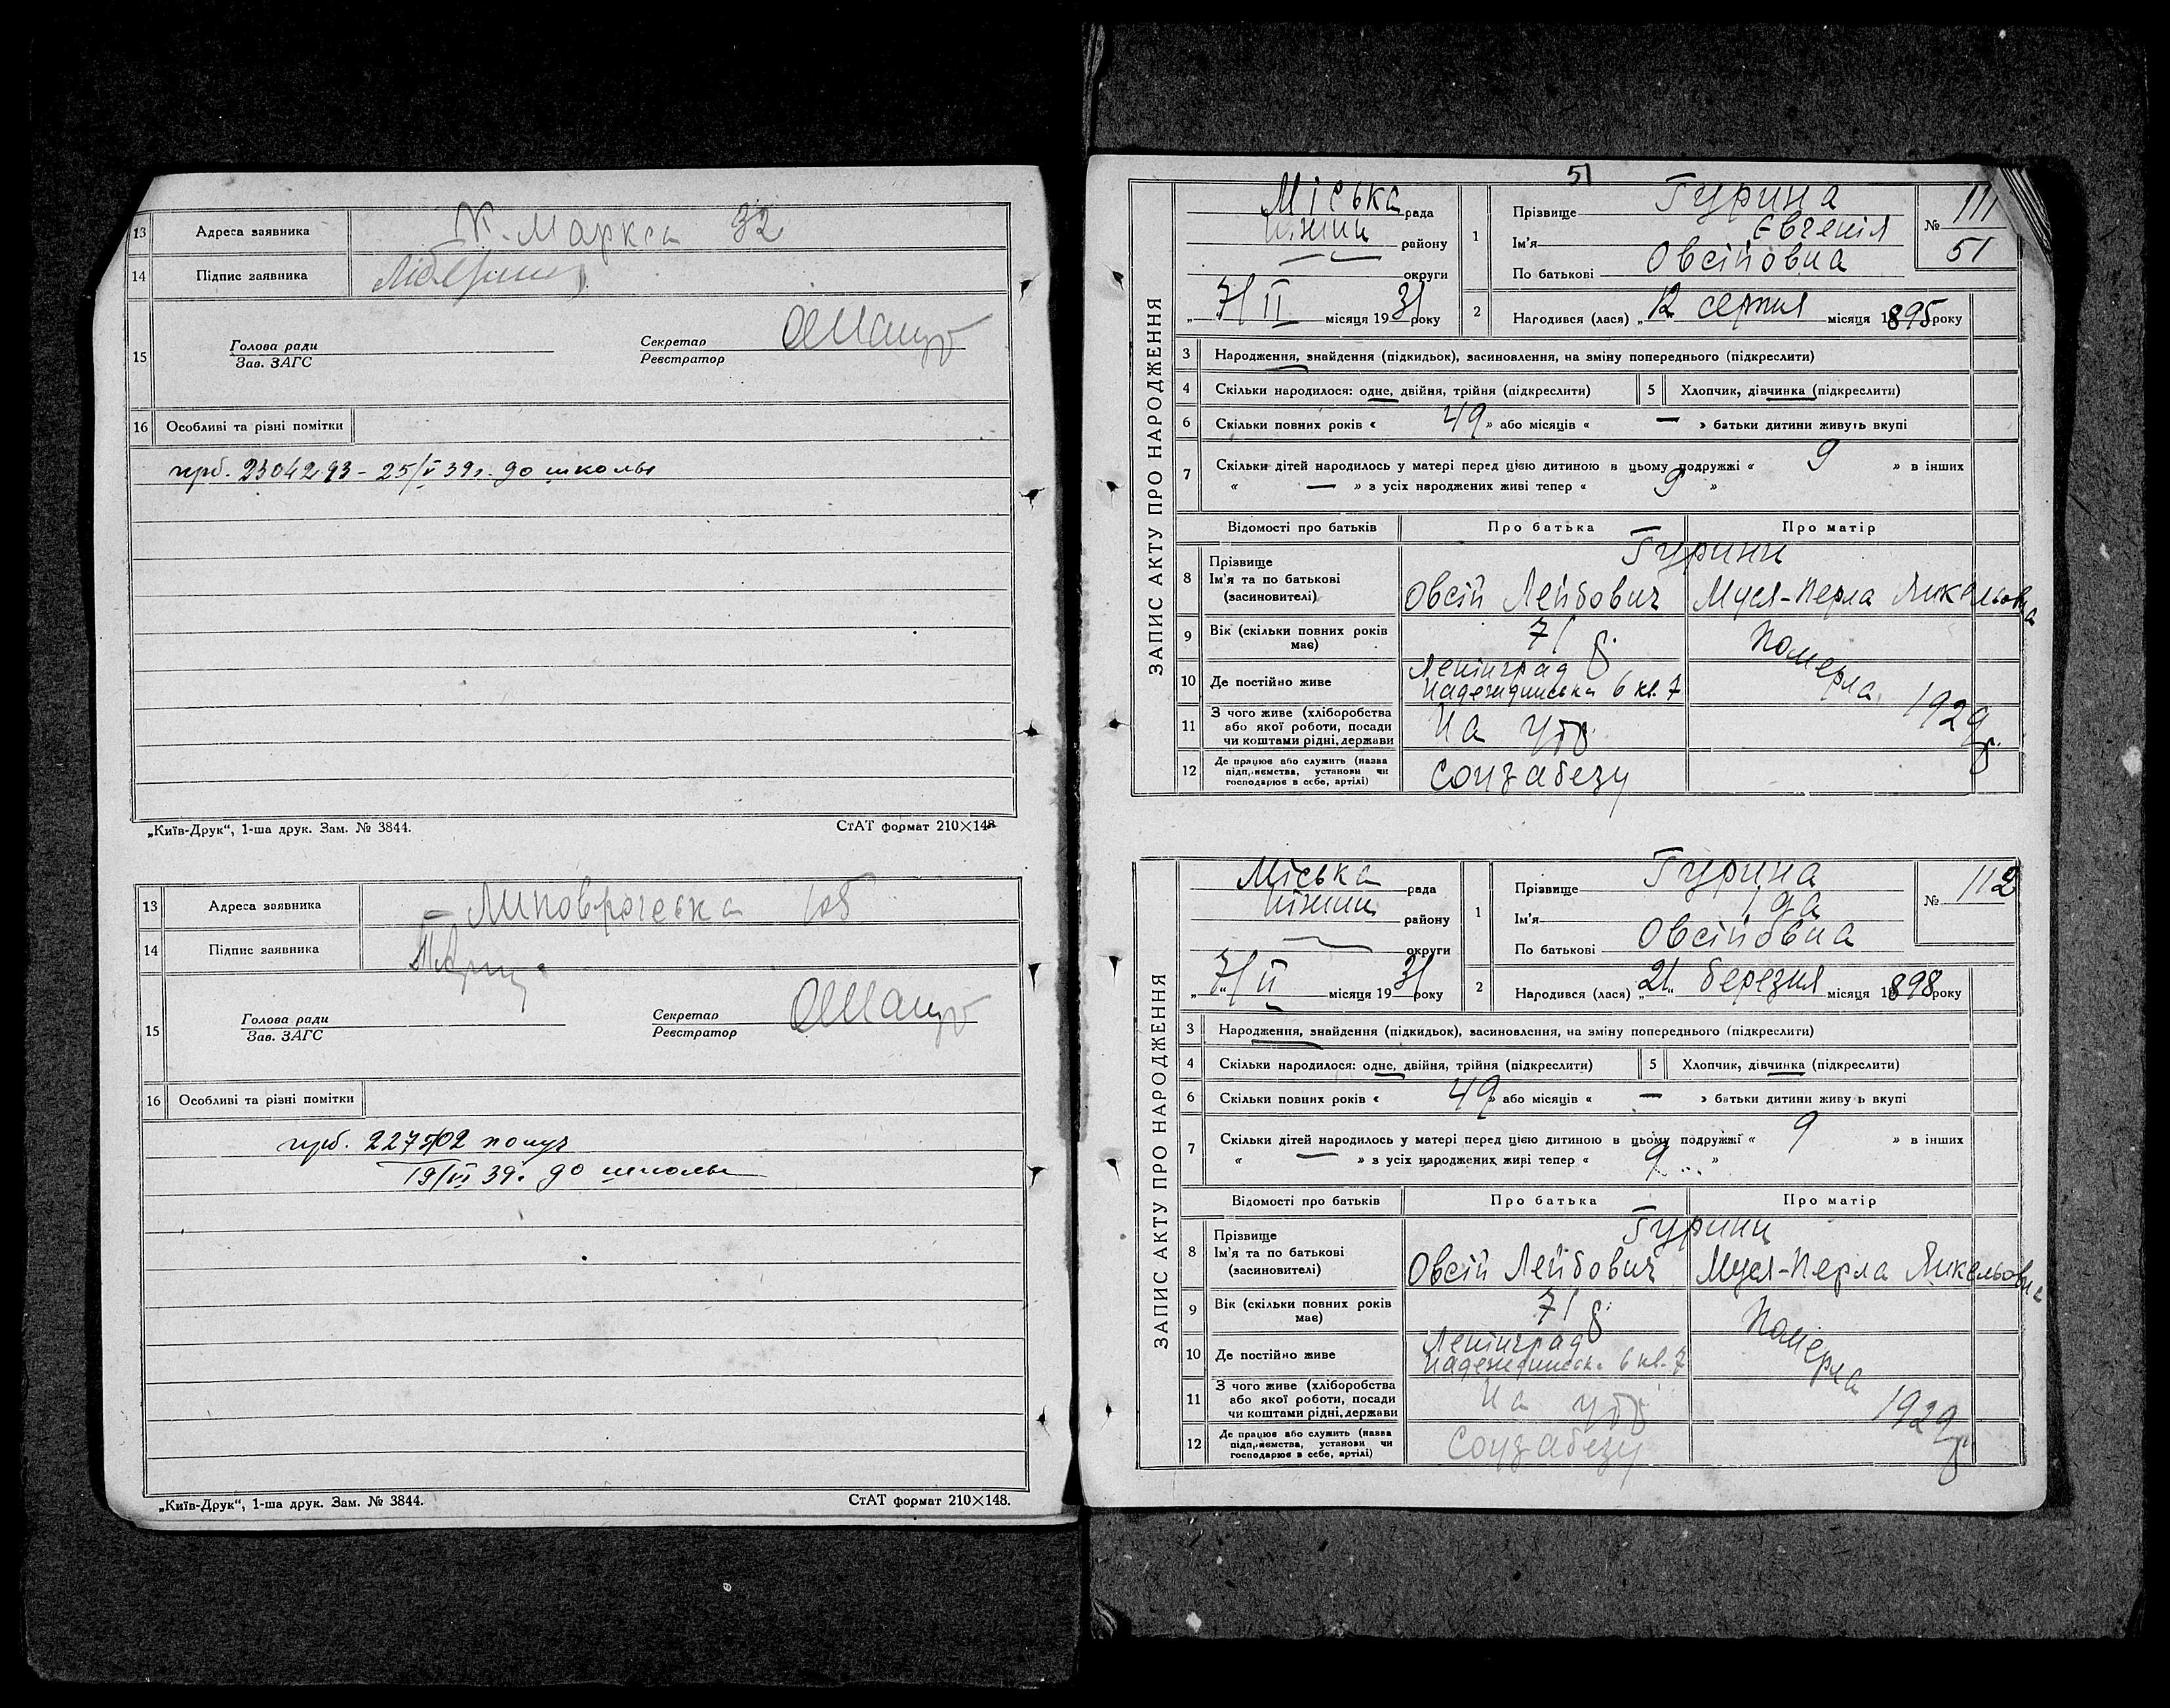 13 Адреса заявника К. Маркса 32
14 Підпис заявника
15 Голова ради Секретар
Зав. ЗАГС Реєстратор
16 Особливі та різні помітки
2304293 - 25/V 39г. до школы
„Київ-Друк“, 1-ша друк. Зам. № 3844. СтАТ формат 210×148
13 Адреса заявника
14 Підпис заявника
15 Голова ради Секретар
Зав. ЗАГС Реєстратор
16 Особливі та різні помітки
получ
19/VI 39. до школы
„Київ-Друк“, 1-ша друк. Зам. № 3844. СтАТ формат 210×148.
51
ЗАПИС АКТУ ПРО НАРОДЖЕННЯ
Міська рада
Ніжин району
округи
„ 7/II місяця 1931 року
1 Прізвище Гурина
Ім'я Євгенія
По батькові Овсіповна
№ 111
51
2 Нагодився (лася) „12 серпня місяця 1895 року
3 Народження, знайдення (підкидьок), засиновлення, на зміну попереднього (підкреслити)
4 Скільки народилося: одне, двійня, трійня (підкреслити) 5 Хлопчик, дівчинка (підкреслити)
6 Скільки повних років « 49 » або місяців « — » батьки дитини живуть вкупі
7 Скільки дітей народилось у матері перед цією дитиною в цьому подружжі « 9 » в інших
« — » з усіх народжених живі тепер « 9 »
Відомості про батьків Про батька Про матір
8 Прізвище Гурини
Ім'я та по батькові
(засиновителі) Овсій Лейбович Муся-Перла Янкельовна
9 Вік (скільки повних років має) 71 р. Померла 1929 р.
10 Де постійно живе Ленінград
Надеждинська 6 кв. 7
11 З чого живе (хліборобства
або якої роботи, посади
чи коштами рідні, держави На утр.
12 Де працює або служить (назва
підприємства, установи чи
господарює в себе, артілі) Соцзабезу
ЗАПИС АКТУ ПРО НАРОДЖЕННЯ
Міська рада
Ніжин району
округи
„ 7/II місяця 1931 року
1 Прізвище Гурина
Ім'я Іда
По батькові Овсіповна
№ 112
2 Народився (лася) „21“ березня місяця 1898 року
3 Народження, знайдення (підкидьок), засиновлення, на зміну попереднього (підкреслити)
4 Скільки народилося: одне, двійня, трійня (підкреслити) 5 Хлопчик, дівчинка (підкреслити)
6 Скільки повних років « 49 » або місяців « — » батьки дитини живуть вкупі
7 Скільки дітей народилось у матері перед цією дитиною в цьому подружжі « 9 » в інших
« — » з усіх народжених живі тепер « 9 »
Відомості про батьків Про батька Про матір
8 Прізвище Гурини
Ім'я та по батькові
(засиновителі) Овсій Лейбович Муся-Перла Янкельовна
9 Вік (скільки повних років має) 71 р. Померла 1929 р.
10 Де постійно живе Ленінград
Надеждинськ. 6 кв. 7
11 З чого живе (хліборобства
або якої роботи, посади
чи коштами рідні, держави На утр.
12 Де працює або служить (назва
підприємства, установи чи
господарює в себе, артілі) Соцзабезу